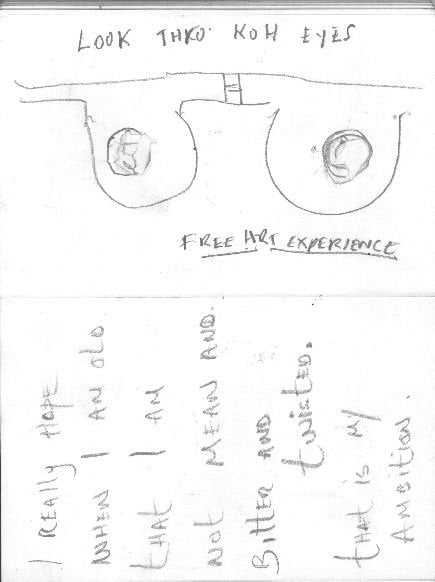 LOOK THRO' KOH EYES
FREE ART EXPERIENCE
I REALLY HOPE
WHEN I AM OLD
THAT I AM
NOT MEAN AND.
BITTER AND
twisted.
tHAT IS MY
AMBITION.